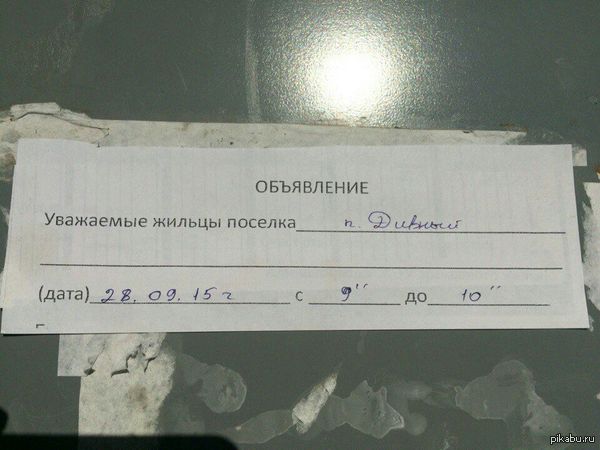 ОБЪЯВЛЕНИЕ
Уважаемые жильцы поселка п. Дивный
(дата) 28.09.15 г с 9" до 10"
pikabu.ru